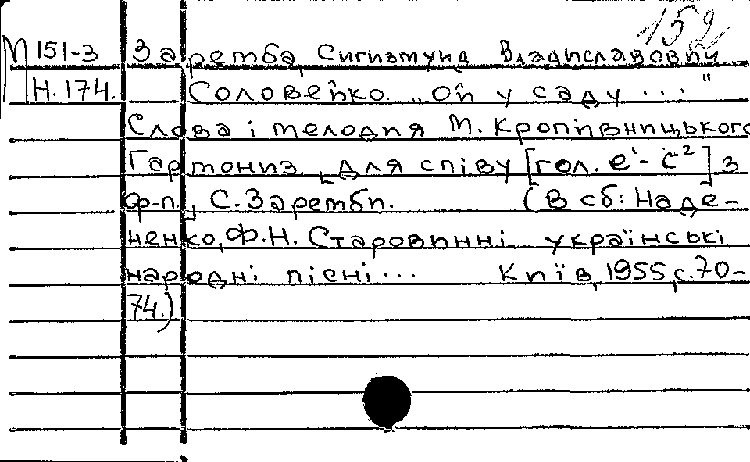 152
М 151-3 Заремба, Сигизмунд Владиславович
Н.174. Соловейко. „Ой у саду ..."
Слова і мелодия М. Кропівницького
Гармониз. [для співу [гол. e¹- c²] з
ф-п.], С. Заремби. (В сб: Наде-
ненко, Ф.Н. Старовинні українські
народні пісні... Київ, 1955, с. 70-
74.)